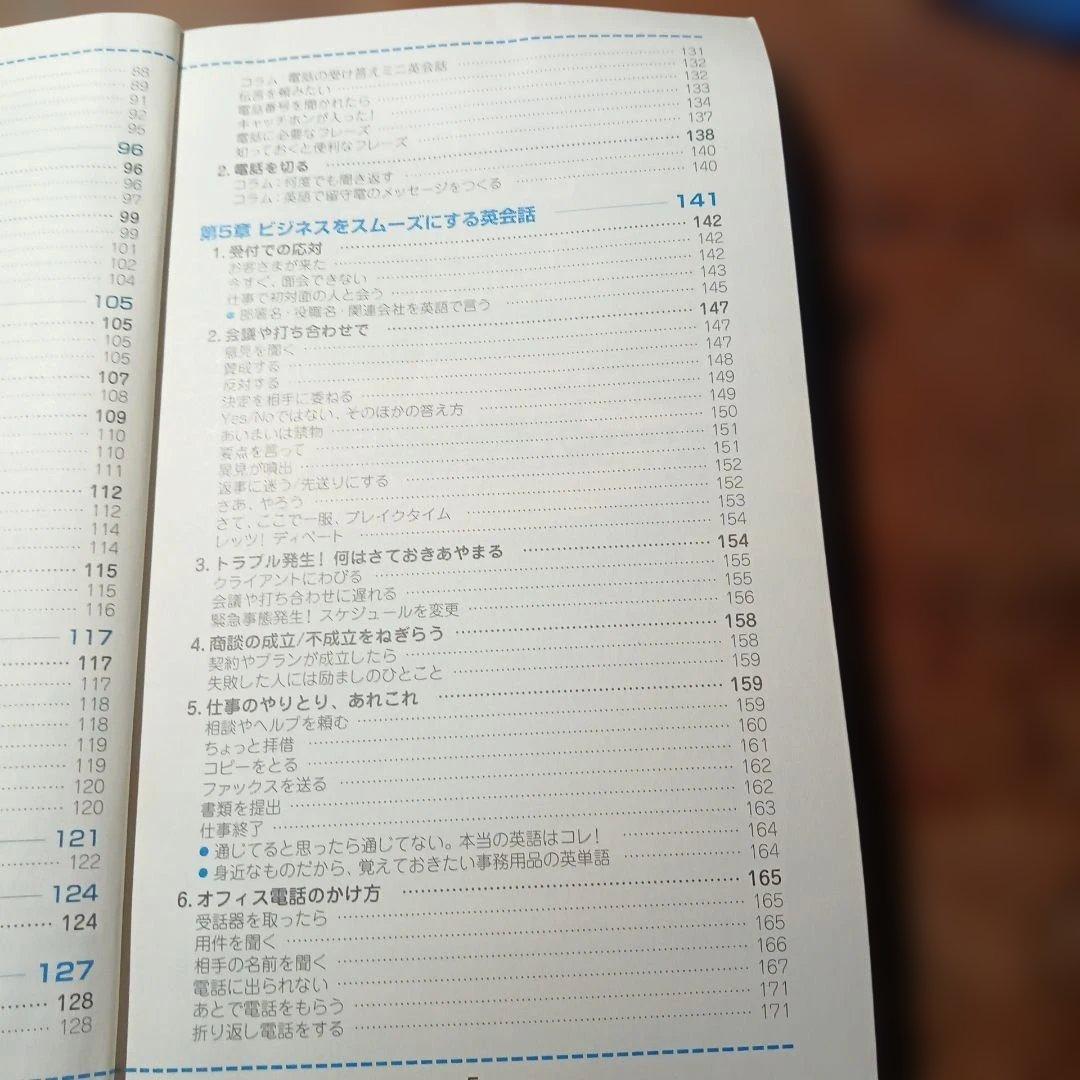 88
89
91
92
95
96
96
96
97
99
99
101
102
104
105
105
105
105
107
108
109
110
110
111
112
112
114
114
115
115
116
117
117
117
118
118
119
119
120
120
121
122
124
124
127
128
128
コラム 電話の受け答えミニ英会話 131
伝言を頼みたい 132
電話番号を聞かれたら 132
キャッチホンが入った! 133
電話に必要なフレーズ 134
知っておくと便利なフレーズ 137
2. 電話を切る 138
コラム:何度でも聞き返す 140
コラム:英語で留守電のメッセージをつくる 140
第5章 ビジネスをスムーズにする英会話 141
1. 受付での応対 142
お客さまが来た 142
今すぐ、面会できない 142
仕事で初対面の人と会う 143
● 部署名・役職名・関連会社を英語で言う 145
2. 会議や打ち合わせで 147
意見を聞く 147
賛成する 147
反対する 148
決定を相手に委ねる 149
Yes/Noではない、そのほかの答え方 149
あいまいは禁物 150
要点を言って 151
異見が噴出 151
返事に迷う/先送りにする 152
さあ、やろう 152
さて、ここで一服、ブレイクタイム 153
レッツ! ディベート 154
3. トラブル発生! 何はさておきあやまる 154
クライアントにわびる 155
会議や打ち合わせに遅れる 155
緊急事態発生! スケジュールを変更 156
4. 商談の成立/不成立をねぎらう 158
契約やプランが成立したら 158
失敗した人には励ましのひとこと 159
5. 仕事のやりとり、あれこれ 159
相談やヘルプを頼む 159
ちょっと拝借 160
コピーをとる 161
ファックスを送る 162
書類を提出 162
仕事終了 163
● 通じてると思ったら通じてない。本当の英語はコレ! 164
● 身近なものだから、覚えておきたい事務用品の英単語 164
6. オフィス電話のかけ方 165
受話器を取ったら 165
用件を聞く 165
相手の名前を聞く 166
電話に出られない 167
あとで電話をもらう 171
折り返し電話をする 171